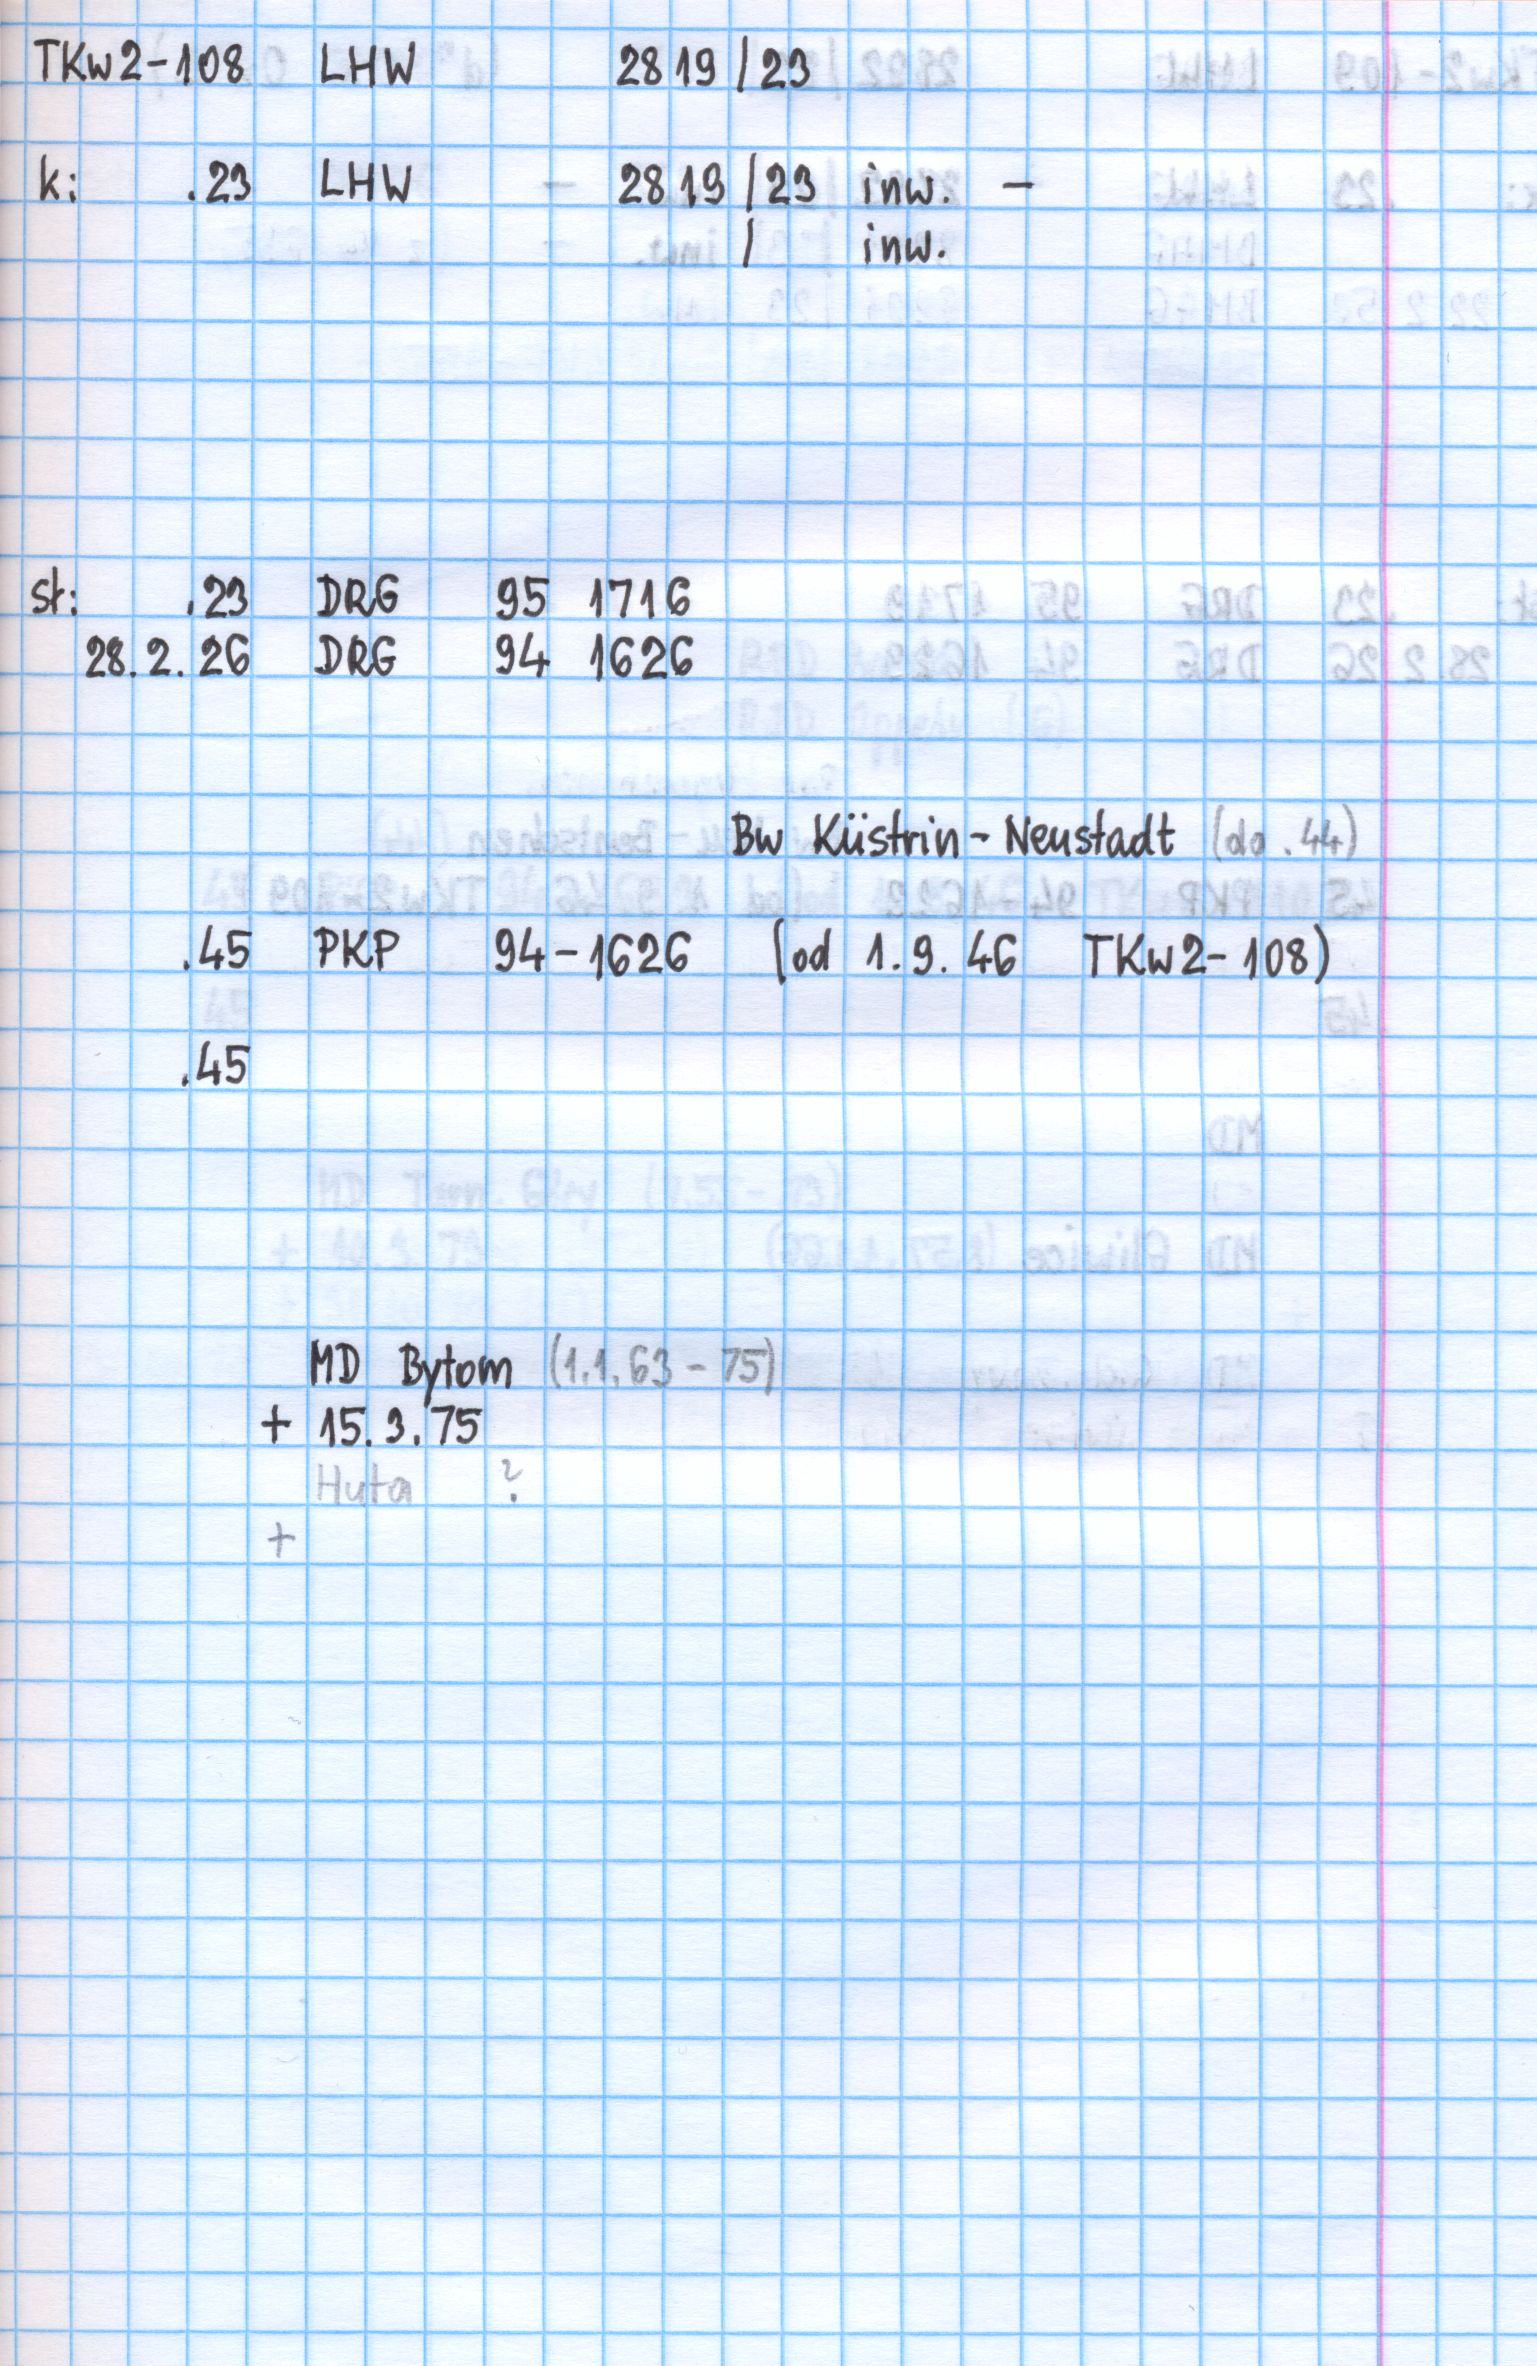 TKw2-108 LHW 2819/23
k: .23 LHW - 2819/23 inw. -
/ inw.
st: .23 DRG 95 1716
28.2.26 DRG 94 1626
Bw Küstrin-Neustadt (do .44)
.45 PKP 94-1626 (od 1.9.46 TKw2-108)
.45
MD Bytom (1.1.63 - 75)
+ 15.3.75
Huta ?
+